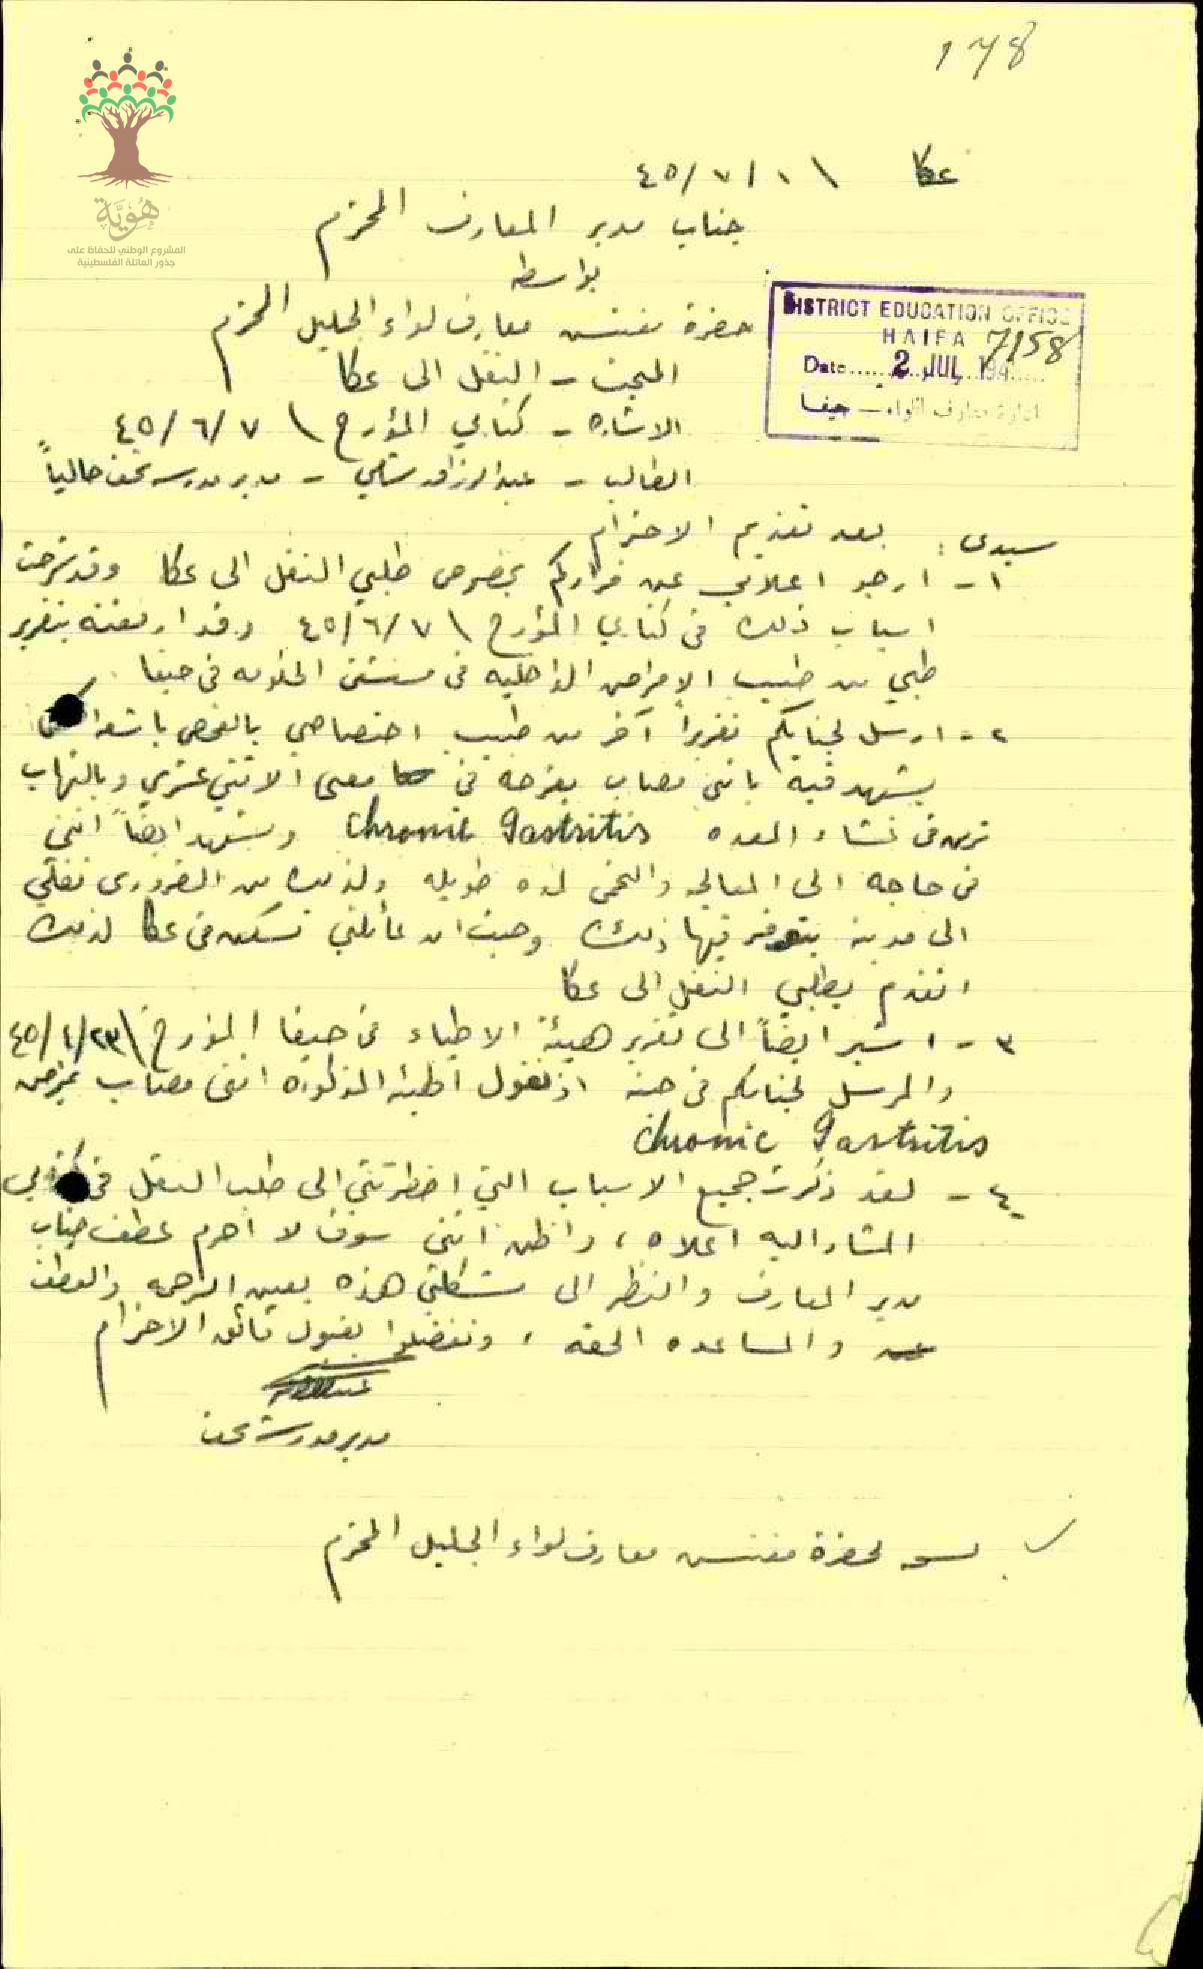 178
هُوِيَّة
المشروع الوطني للحفاظ على
جذور العائلة الفلسطينية
عكا ١/٧/٤٥
جناب مدير المعارف المحترم
بواسطة
حضرة مفتش معارف لواء الجليل المحترم
DISTRICT EDUCATION OFFICE
HAIFA 7158
Date 2 JUL 194
ادارة معارف اللواء – حيفا
المبحث – النقل الى عكا
الاشارة – كتابي المؤرخ ٧/٦/٤٥
الطالب – عبد الرزاق – مدير مدرسة حالياً
سيدي : بعد تقديم الاحترام
١ – ارجو اعلامي عن قراركم بخصوص طلبي النقل الى عكا وقد شرحت
اسباب ذلك في كتابي المؤرخ ٧/٦/٤٥ وقد ارفقته بتقرير
طبي من طبيب الامراض الداخلية في مستشفى الحكومه في حيفا
٢ – ارسل لجنابكم تقريرا آخر من طبيب اختصاصي بالفحص
يشهد فيه بانني مصاب بقرحة في معي الاثني عشري وبالتهاب
مزمن في غشاء المعده Chronic Gastritis ويشهد ايضاً انني
في حاجة الى المعالجه لمده طويله ولذلك من الضروري نقلي
الى مدينة يتوفر فيها ذلك وحيث ان عائلتي تسكن في عكا لذلك
اتقدم بطلبي النقل الى عكا
٣ – اشير ايضاً الى تقرير هيئة الاطباء في حيفا المؤرخ
والمرسل لجنابكم في حينه اذ تقول المذكوره انني مصاب بمرض
Chronic Gastritis
٤ – لقد ذكرت جميع الاسباب التي اضطرتني الى طلب النقل في كتابي
المشار اليه اعلاه ، واظن انني سوف لا احرم عطف جناب
مدير المعارف والنظر الى مشكلتي هذه بعين الرحمه والعطف
والمساعده الحقه ، وتفضلوا بقبول فائق الاحترام
مدير مدرسة
لحضرة مفتش معارف لواء الجليل المحترم